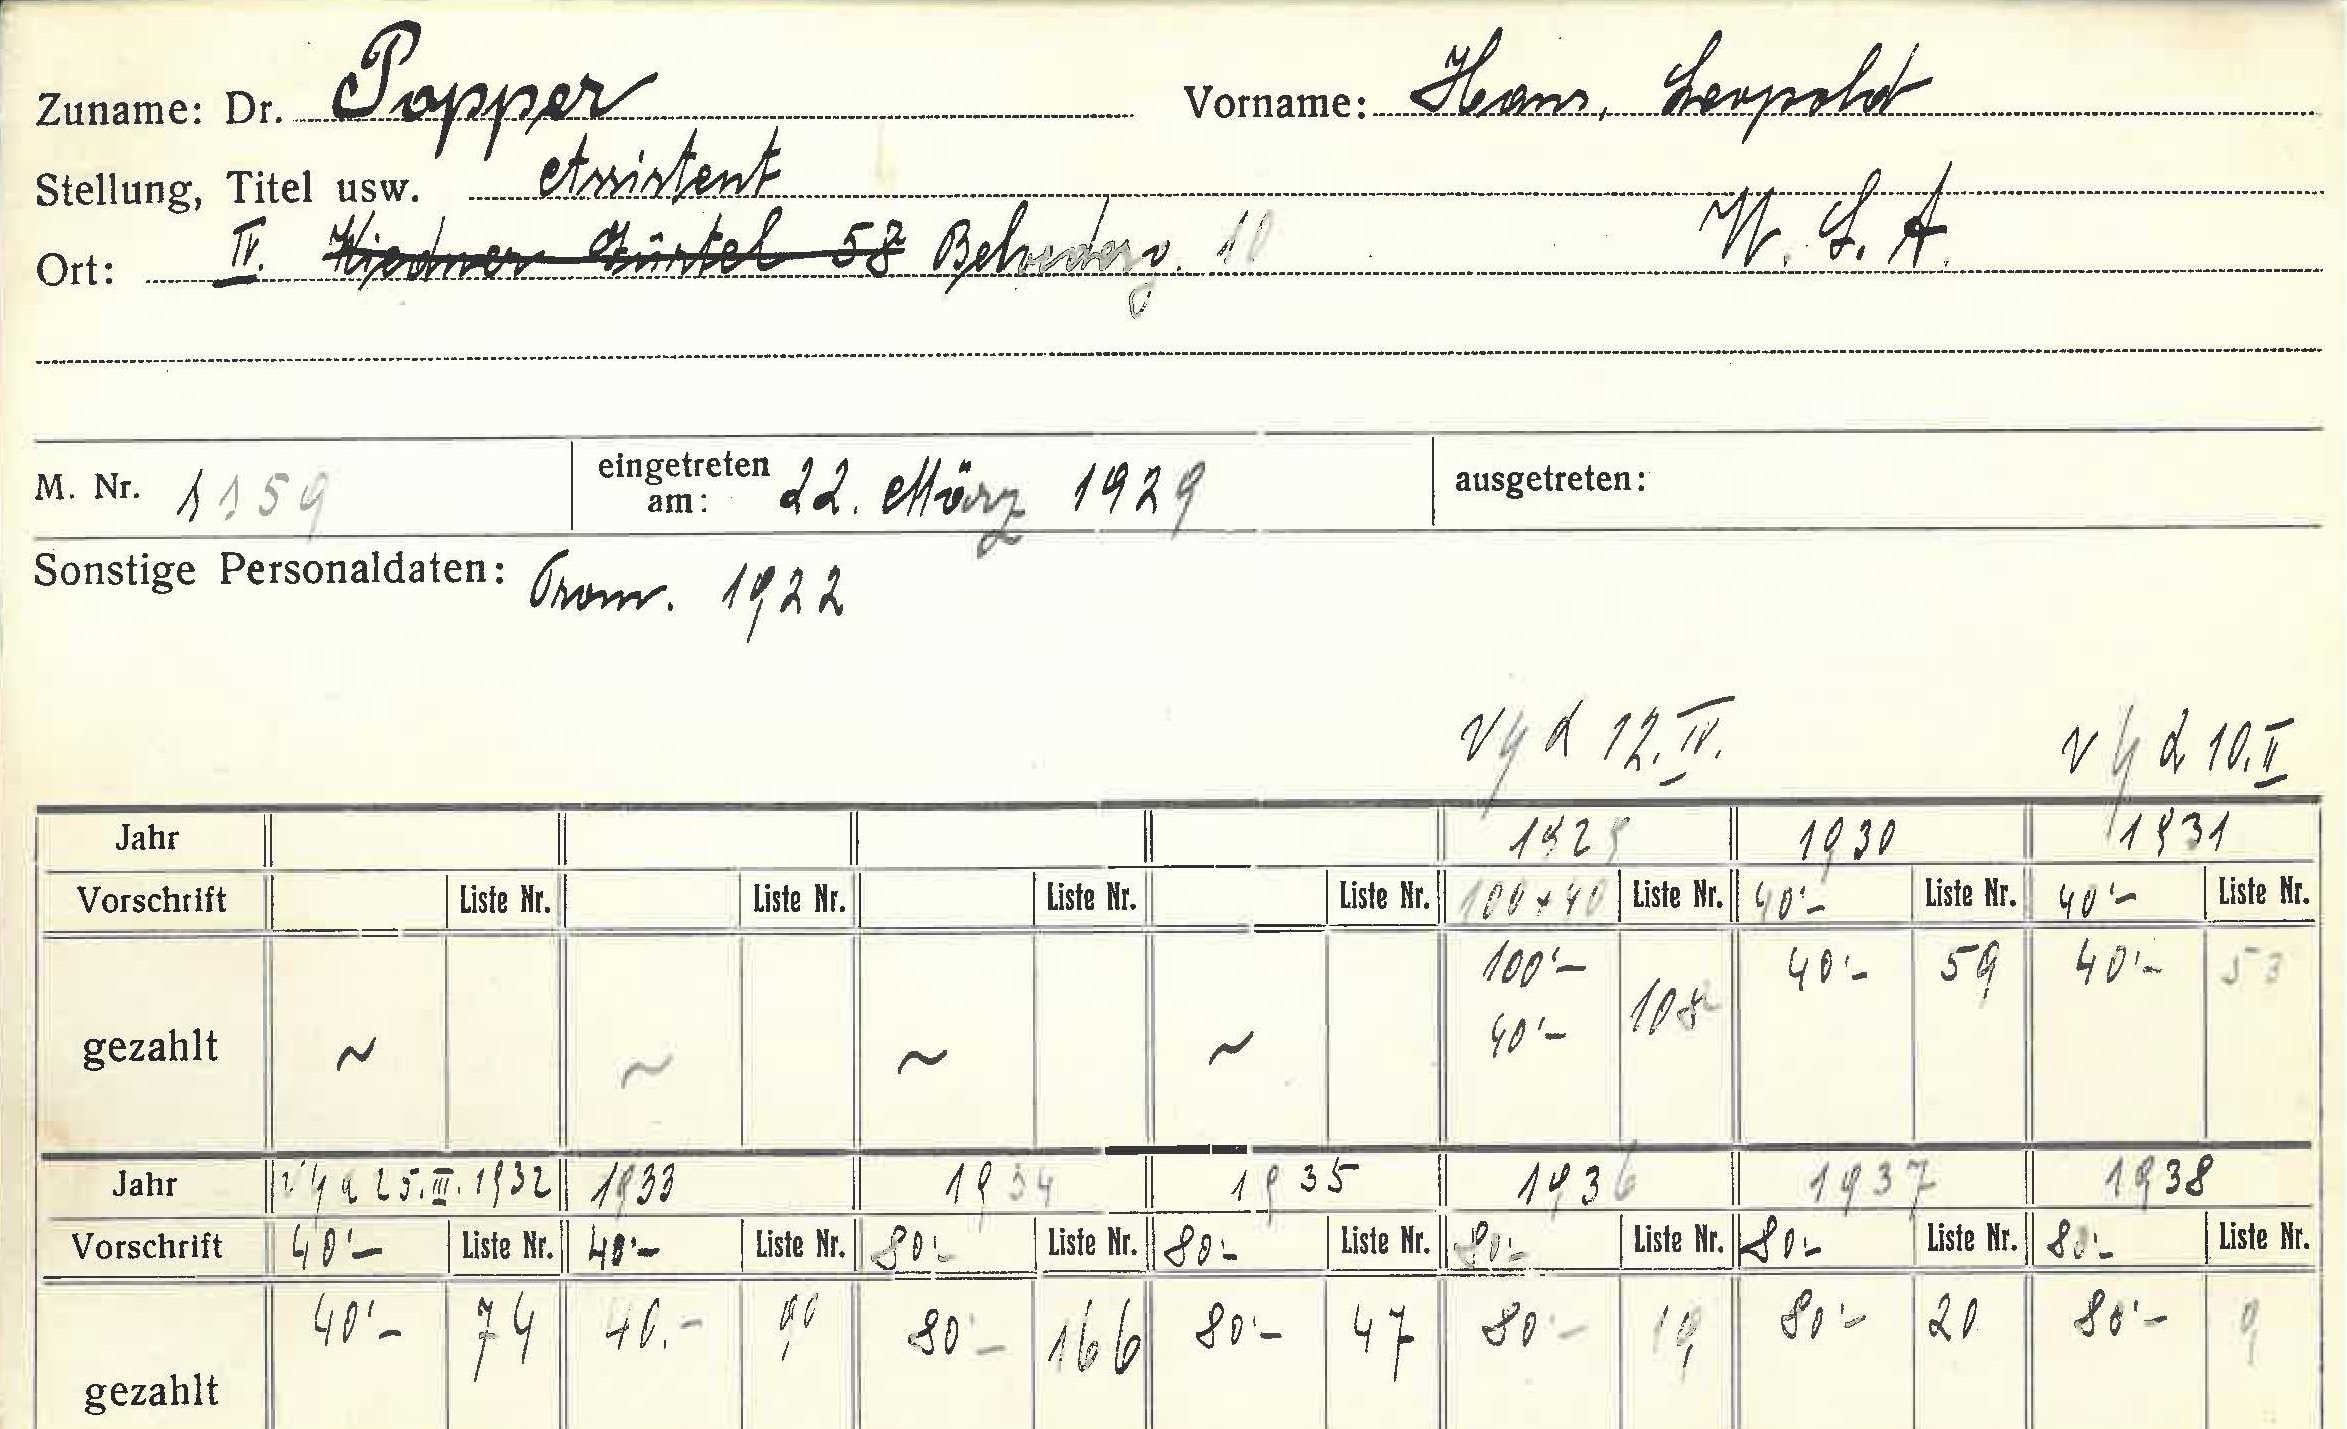 Zuname: Dr. Popper Vorname: Hans, Leopold
Stellung, Titel usw. Assistent
Ort: IV. Wiedner Gürtel 58 Belvederg. 10 U. S. A.
M. Nr. 1159 eingetreten am: 22. März 1929 ausgetreten:
Sonstige Personaldaten: Prom. 1922
12. IV. 10. II
Jahr 1929 1930 1931
Vorschrift Liste Nr. Liste Nr. Liste Nr. Liste Nr. 100 + 40 Liste Nr. 40'- Liste Nr. 40'- Liste Nr.
gezahlt ~ ~ ~ ~ 100'- 40'- 108 40'- 59 40'- 53
Jahr 25. III. 1932 1933 1934 1935 1936 1937 1938
Vorschrift 40'- Liste Nr. 40'- Liste Nr. 80'- Liste Nr. 80'- Liste Nr. 80'- Liste Nr. 80'- Liste Nr. 80'- Liste Nr.
gezahlt 40'- 74 40.- 90 80'- 166 80'- 47 80'- 19 80'- 20 80'- 9